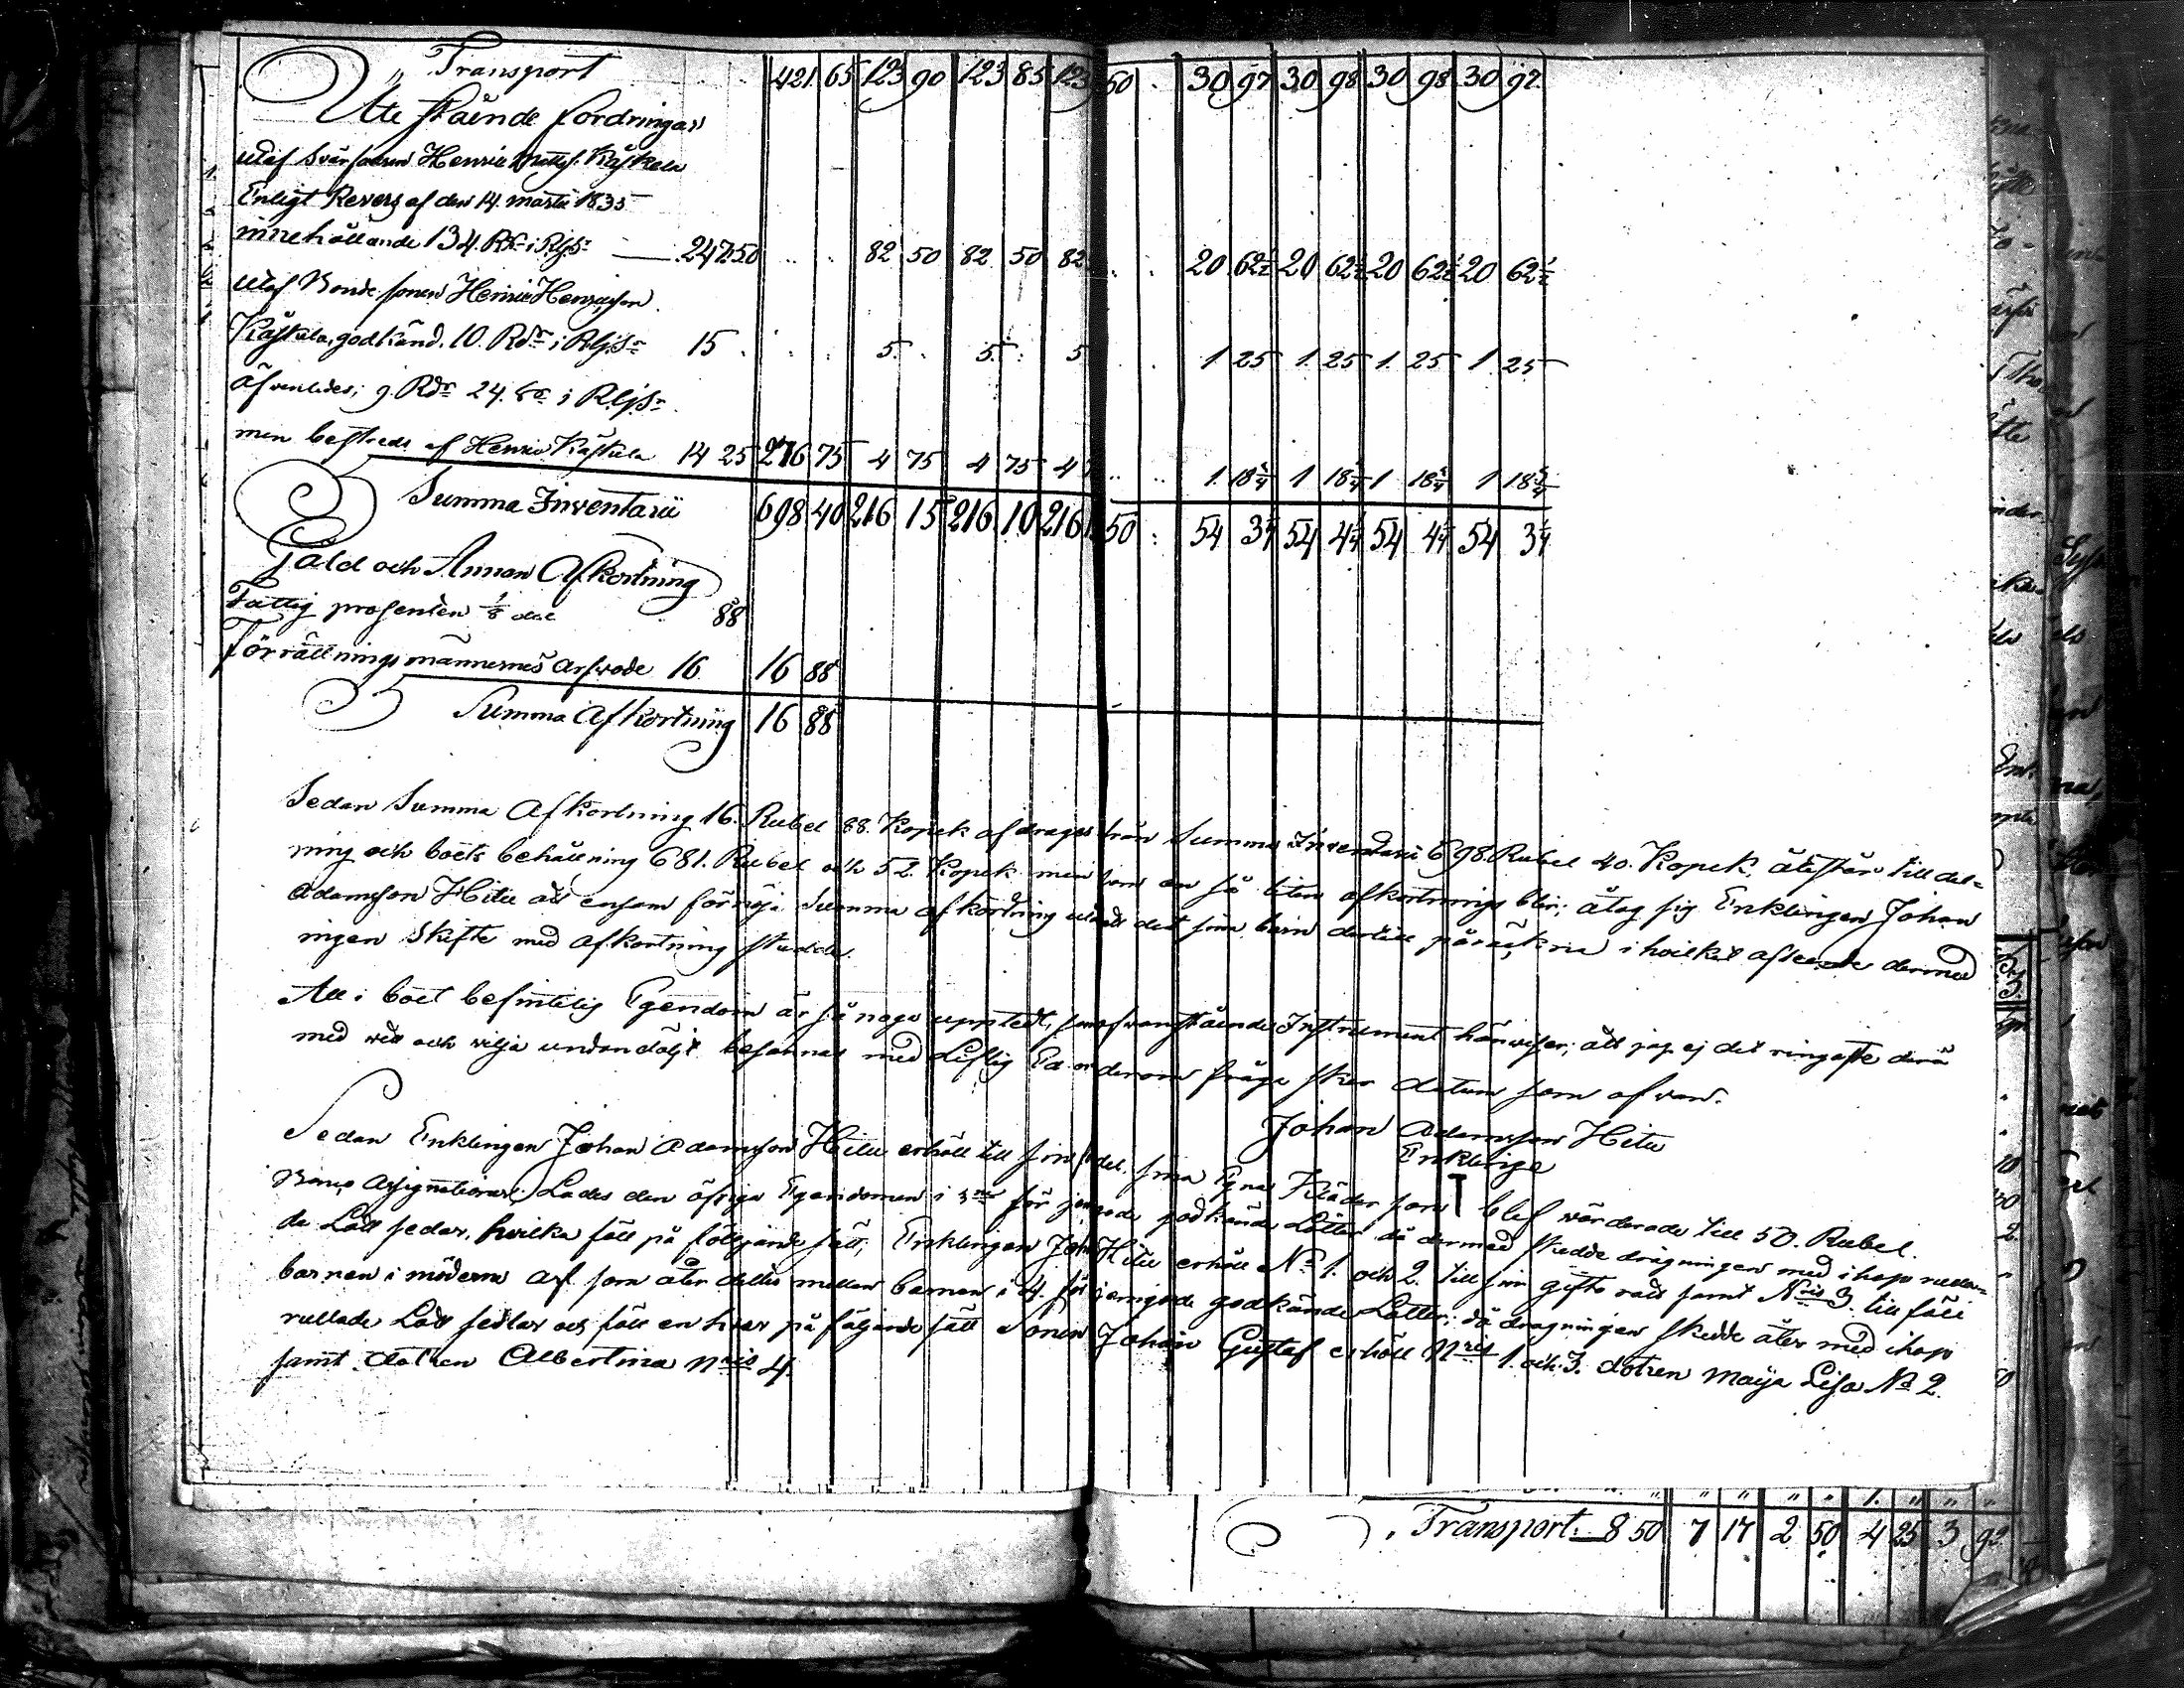 Transport 421 65 123 90 123 85 123 50 30 97 30 98 30 98 30 97
Ute stående fordringar
utaf Svärfadren Henric Matts. Kästkela
Enligt Revers af den 14. Martii 1835
innehållande 134. Rdr i Rgs 247 50 82 50 82 50 82 20 62½ 20 62½ 20 62½ 20 62½
utaf Bonde sonen Henric Henricsson
Kästkela, godkänd. 10. Rdr i Rgs 15 5 5 5 1 25 1 25 1 25 1 25
äfvenledes; 9. Rdr 24. i Rgs
men bestrids af Henric Kästkela 14 25 276 75 4 75 4 75 4 1 18¾ 1 18¾ 1 18¾ 1 18¾
Summa Inventarii 698 40 216 15 216 10 216 50 54 3¼ 54 4¼ 54 4¼ 54 3¼
Gäld och Annan Afkortning
Fattig procenten ⅛ del 88
Förrättnings männernes arfvode 16 16 88
Summa Afkortning 16 88
Sedan Summa Afkortning 16. Rubel 88. Kopek afdrages från Summa Inventarii 698. Rubel 40. Kopek, återstår till del=
ning och boets behållning 681. Rubel och 52. Kopek men som en så liten afkortnings blir; åtog sig Enklingen Johan
Adamsson Hitu att ensam förnöja Summa afkortning utan det sina barn dertill påräkna i hvilket afseende dermed
ingen Skifte med afkortning skedde.
All i boet befintelig Egendom är så noga upptedt, som ofvanstående Instrument hänviser; att jag ej det ringaste derå
med vett och vilja undandöljt besannas med Liflig Ed om derom fråga sker datum som ofvan.
Johan Adamsson Hitu
Enklinge
Sedan Enklingen Johan Adamsson Hitu erhöll till sin del sina Egna Kläder som blef värderade till 50. Rubel.
Banco Assignationer. Lades den öfriga Egendomen i 3ne för jemgoda godkände Lotter då dermed skedde dragningen med ihop rulla=
de Lott sedlar, hvilka föll på följande sätt; Enklingen Joh Hitu erhöll No 1. och 2. till sin gifto rätt samt Nris 3. till föll
barnen i möderne arf som åter deltes mellan barnen i 4. för jemgoda godkände Lotter; då dragningen skedde åter med ihop
rullade Lott sedlar och föll en hvar på följande sätt Sonen Johan Gustaf erhöll Nris 1. och 3. dotren Maija Lisa No 2.
samt dotren Albertina Nris 4.
Transport. 8 50 7 17 2 50 4 25 3 92